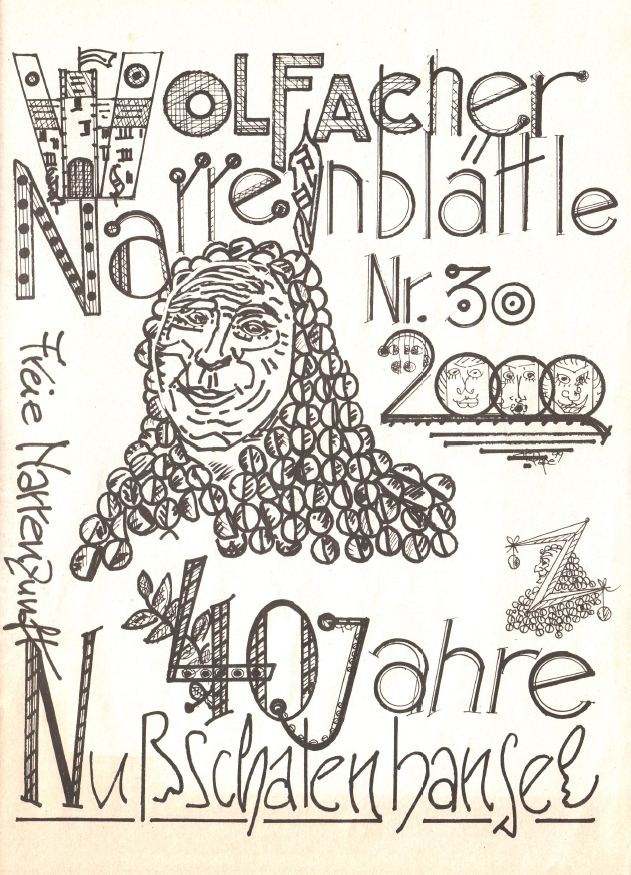 Wolfacher
Narrenblättle
Nr. 30
2000
Freie Narrenzunft
40 Jahre
Nußschalenhansel